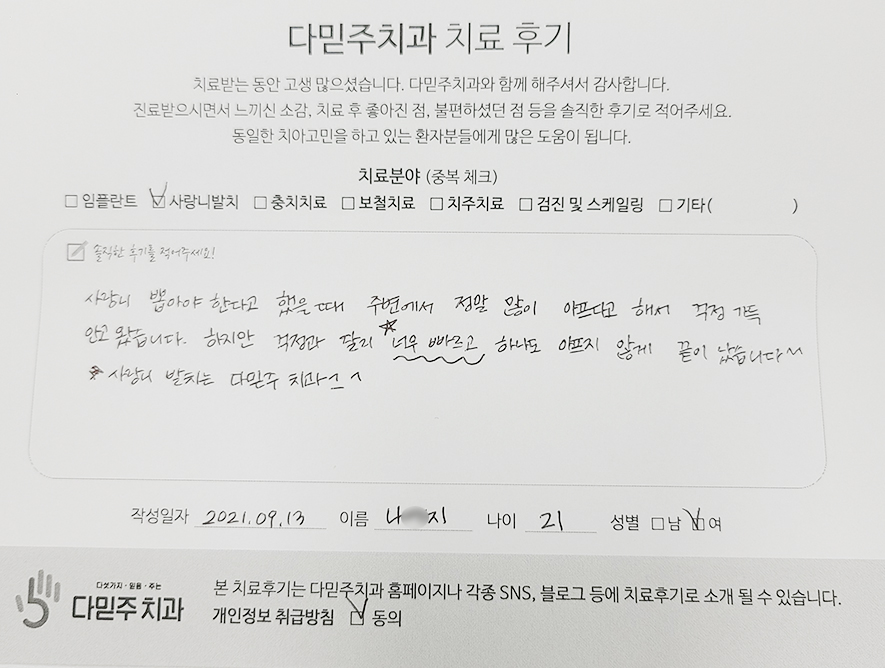 다믿주치과 치료 후기
치료받는 동안 고생 많으셨습니다. 다믿주치과와 함께 해주셔서 감사합니다.
진료받으시면서 느끼신 소감, 치료 후 좋아진 점, 불편하셨던 점 등을 솔직한 후기로 적어주세요.
동일한 치아고민을 하고 있는 환자분들에게 많은 도움이 됩니다.
치료분야 (중복 체크)
□ 임플란트 ☑ 사랑니발치 □ 충치치료 □ 보철치료 □ 치주치료 □ 검진 및 스케일링 □ 기타( )
솔직한 후기를 적어주세요!
사랑니 뽑아야 한다고 했을 때 주변에서 정말 많이 아프다고 해서 걱정 가득
안고 왔습니다. 하지만 걱정과 달리 ☆너무 빠르고 하나도 아프지 않게 끝이 났습니다~
★ 사랑니 발치는 다믿주 치과 ^_^
작성일자 2021.09.13 이름 나 지 나이 21 성별 □남 ☑여
다섯가지·믿음·주는
다믿주치과
본 치료후기는 다믿주치과 홈페이지나 각종 SNS, 블로그 등에 치료후기로 소개 될 수 있습니다.
개인정보 취급방침 ☑ 동의